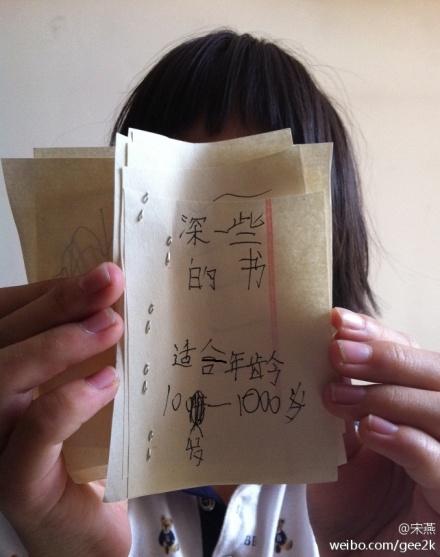 深一些
的书
适合年龄
10岁—1000岁
@宋燕
weibo.com/gee2k